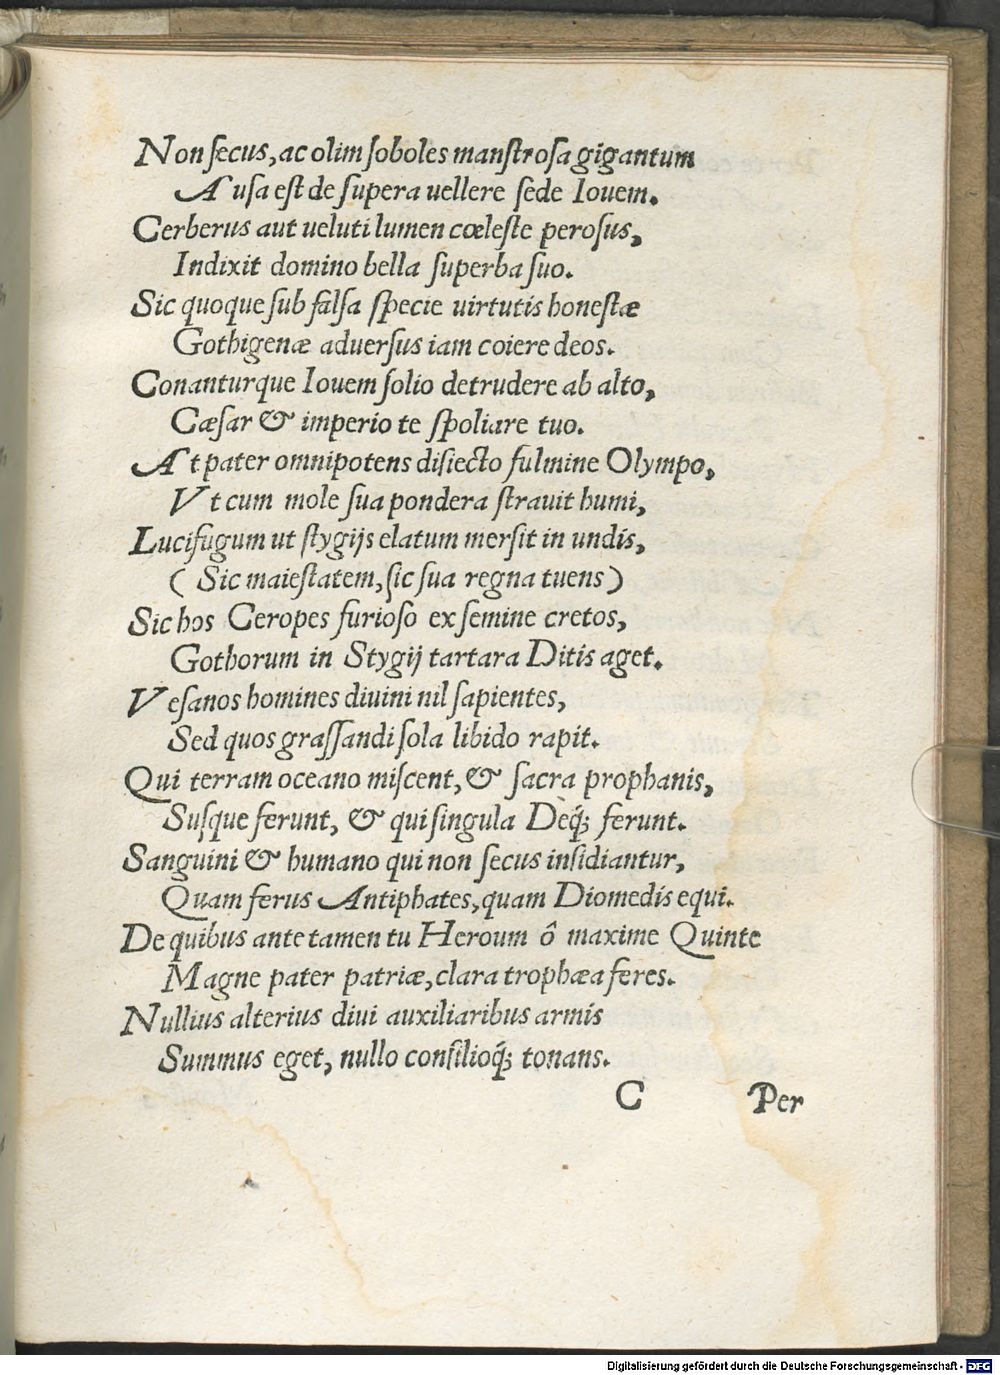 Non ſecus, ac olim ſoboles manſtroſa gigantum
Auſa eſt de ſupera uellere ſede Iouem.
Cerberus aut ueluti lumen cœleſte peroſus,
Indixit domino bella ſuperba ſuo.
Sic quoque ſub falſa ſpecie uirtutis honeſtæ
Gothigenæ aduerſus iam coiere deos.
Conanturque Iouem ſolio detrudere ab alto,
Cæſar & imperio te ſpoliare tuo.
At pater omnipotens diſiecto fulmine Olympo,
Vt cum mole ſua pondera ſtrauit humi,
Lucifugum ut ſtygijs elatum merſit in undis,
( Sic maieſtatem, ſic ſua regna tuens )
Sic hos Ceropes furioſo ex ſemine cretos,
Gothorum in Stygij tartara Ditis aget.
Veſanos homines diuini nil ſapientes,
Sed quos graſſandi ſola libido rapit.
Qui terram oceano miſcent, & ſacra prophanis,
Suſque ferunt, & qui ſingula Deq́; ferunt.
Sanguini & humano qui non ſecus inſidiantur,
Quam ferus Antiphates, quam Diomedis equi.
De quibus ante tamen tu Heroum ô maxime Quinte
Magne pater patriæ, clara trophæa feres.
Nullius alterius diui auxiliaribus armis
Summus eget, nullo conſilioq́; tonans.
C Per
Digitalisierung gefördert durch die Deutsche Forschungsgemeinschaft - DFG